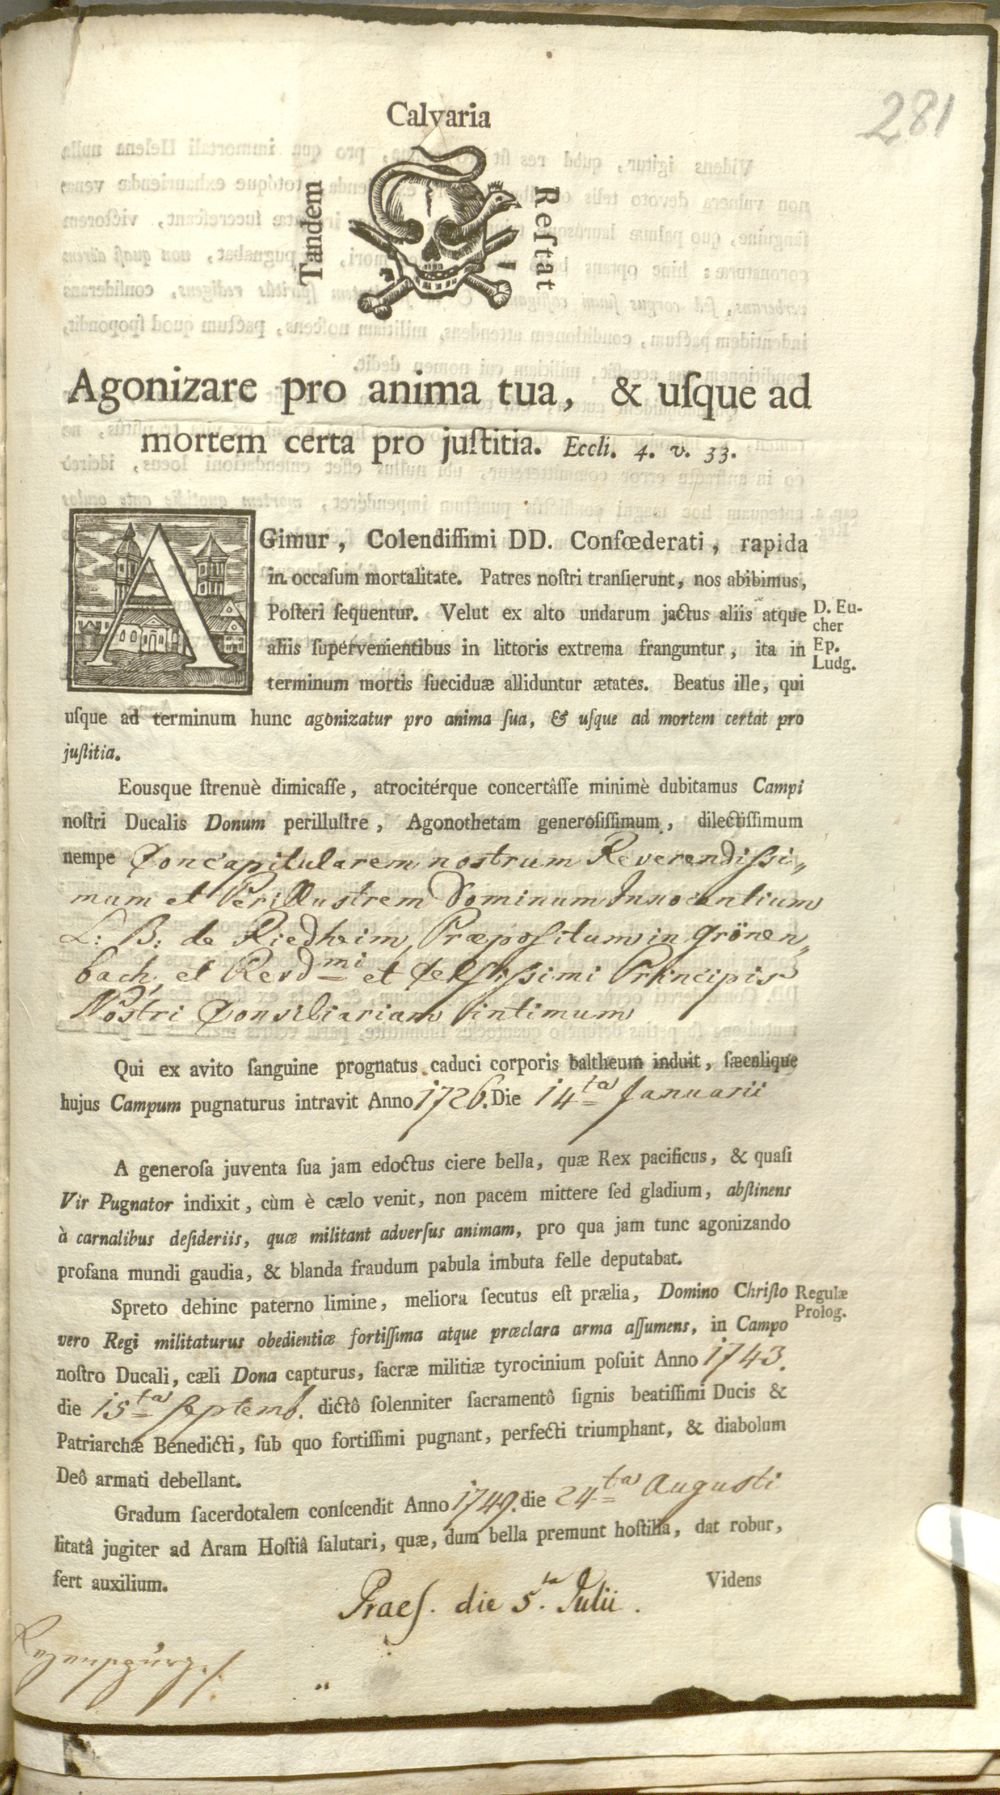 281
Calvaria
Tandem
Reſtat
Agonizare pro anima tua, & uſque ad
mortem certa pro juſtitia. Eccli. 4. v. 33.
AGimur, Colendiſſimi DD. Confœderati, rapida
in occaſum mortalitate. Patres noſtri tranſierunt, nos abibimus,
Poſteri ſequentur. Velut ex alto undarum jactus aliis atque
aliis ſupervenientibus in littoris extrema franguntur, ita in
terminum mortis ſucciduæ alliduntur ætates. Beatus ille, qui
uſque ad terminum hunc agonizatur pro anima ſua, & uſque ad mortem certat pro
juſtitia.
D. Eu-
cher
Ep.
Ludg.
Eousque ſtrenuè dimicaſſe, atrocitérque concertâſſe minimè dubitamus Campi
noſtri Ducalis Donum perilluſtre, Agonothetam generoſiſſimum, dilectiſſimum
nempe Concapitularem nostrum Reverendissi-
mum et Perillustrem Dominum Innocentium
L: B: de Riedheim, Præpositum in Grönen-
bach, et Revdmi et Celsissimi Principis
Nostri Consiliarium intimum
Qui ex avito ſanguine prognatus caduci corporis baltheum induit, ſæculique
hujus Campum pugnaturus intravit Anno 1726. Die 14ta Januarii
A generoſa juventa ſua jam edoctus ciere bella, quæ Rex pacificus, & quaſi
Vir Pugnator indixit, cùm è cælo venit, non pacem mittere ſed gladium, abſtinens
à carnalibus deſideriis, quæ militant adverſus animam, pro qua jam tunc agonizando
profana mundi gaudia, & blanda fraudum pabula imbuta felle deputabat.
Spreto dehinc paterno limine, meliora ſecutus eſt prælia, Domino Chriſto
vero Regi militaturus obedientiæ fortiſſima atque præclara arma aſſumens, in Campo
noſtro Ducali, cæli Dona capturus, ſacræ militiæ tyrocinium poſuit Anno 1743.
die 15ta Septemb. dictô ſolenniter ſacramentô ſignis beatiſſimi Ducis &
Patriarchæ Benedicti, ſub quo fortiſſimi pugnant, perfecti triumphant, & diabolum
Deô armati debellant.
Regulæ
Prolog.
Gradum ſacerdotalem conſcendit Anno 1749. die 24ta Augusti
litatâ jugiter ad Aram Hoſtiâ ſalutari, quæ, dum bella premunt hoſtilia, dat robur,
fert auxilium.
Videns
Praes. die 5ta Julii.